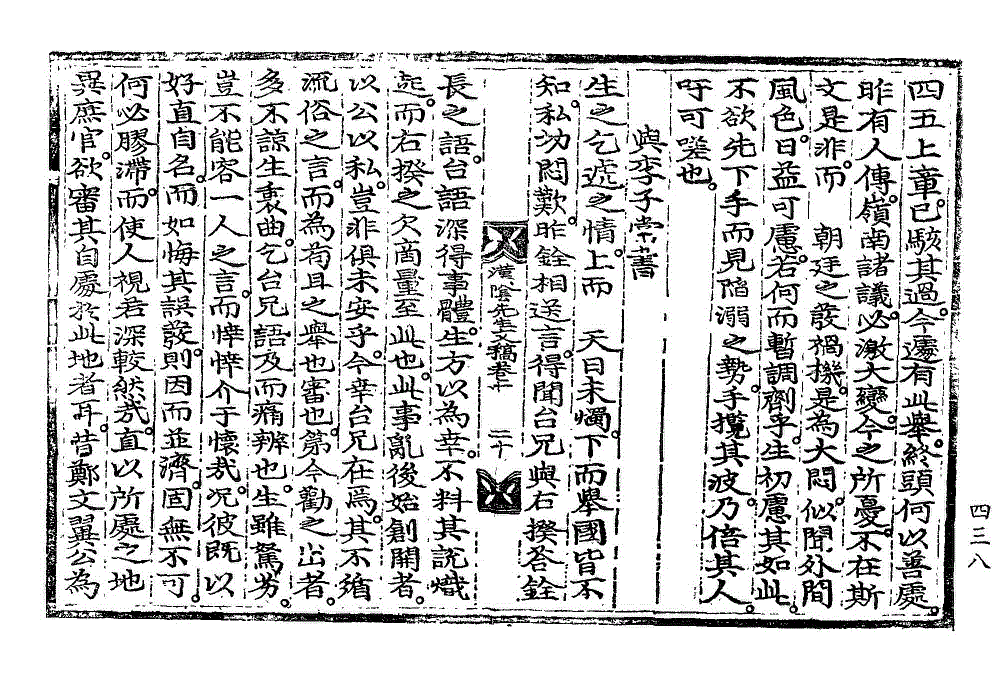 四五上章。已駭其過。今遽有此擧。終頭何以善處。
昨有人傳。嶺南諸議。必激大變。今之所憂。不在斯
文是非。而 朝廷之發禍機。是爲大悶。似聞外間
風色。日益可慮。若何而暫調劑乎。生初慮其如此。
不欲先下手而見陷溺之勢。手攬其波。乃倍其人。
吁可嗟也。
與李子常書
生之乞遞之情。上而 天日未燭。下而擧國皆不
知。私切悶歎。昨銓相送言。得聞台兄與右揆答銓
漢陰先生文稿卷十 二十
長之語。台語深得事體。生方以爲幸。不料其說熾
起。而右揆之欠商量至此也。此事亂後始創開者。
以公以私。豈非俱未安乎。今幸台兄在焉。其不循
流俗之言。而爲苟且之擧也審也。第今勸之出者。
多不諒生衷曲。乞台兄語及而痛辨也。生雖駑劣。
豈不能容一人之言。而悻悻介于懷哉。况彼旣以
好直自名。而如悔其誤發。則因而並濟。固無不可。
何必膠滯。而使人視若深較然哉。直以所處之地
異庶官。欲審其自處於此地者耳。昔鄭文翼公爲
四三八